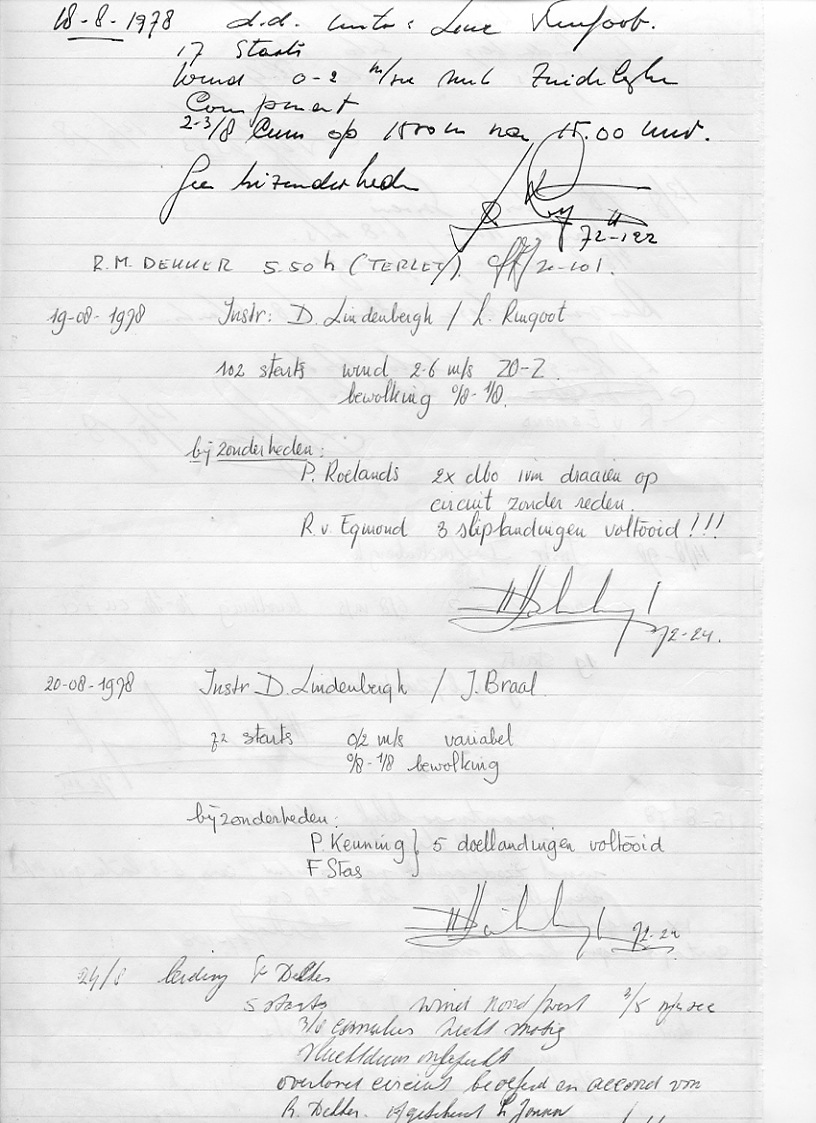 18-8-1978 d.d. instr: Lene Ringoot.
17 Starts
Wind 0-2 m/sec met Zuidelijke
Component
2-3/8 Cum op 1500 m na 15.00 uur.
Geen bizonderheden
72-122
R.M. DEKKER 5.50 h (TERLET). 20-101.
19-08-1978 Instr: D. Lindenbergh / L. Ringoot
102 starts wind 2-6 m/s ZO-Z.
bewolking 0/8-1/8.
bijzonderheden:
P. Roelands 2x dbo ivm draaien op
circuit zonder reden.
R. v. Egmond 3 sliplandingen voltooid!!!
72-24.
20-08-1978 Instr D. Lindenbergh / J. Braal
72 starts 0/2 m/s variabel
0/8-1/8 bewolking
bijzonderheden:
P. Keuning } 5 doellandingen voltooid
F Stas
72-24
24/8 leiding Dekker
5 starts wind Noord/west 3/5 m/sec
3/8 cumulus zicht matig
circuit beoefend en accoord van
R. Dekker.